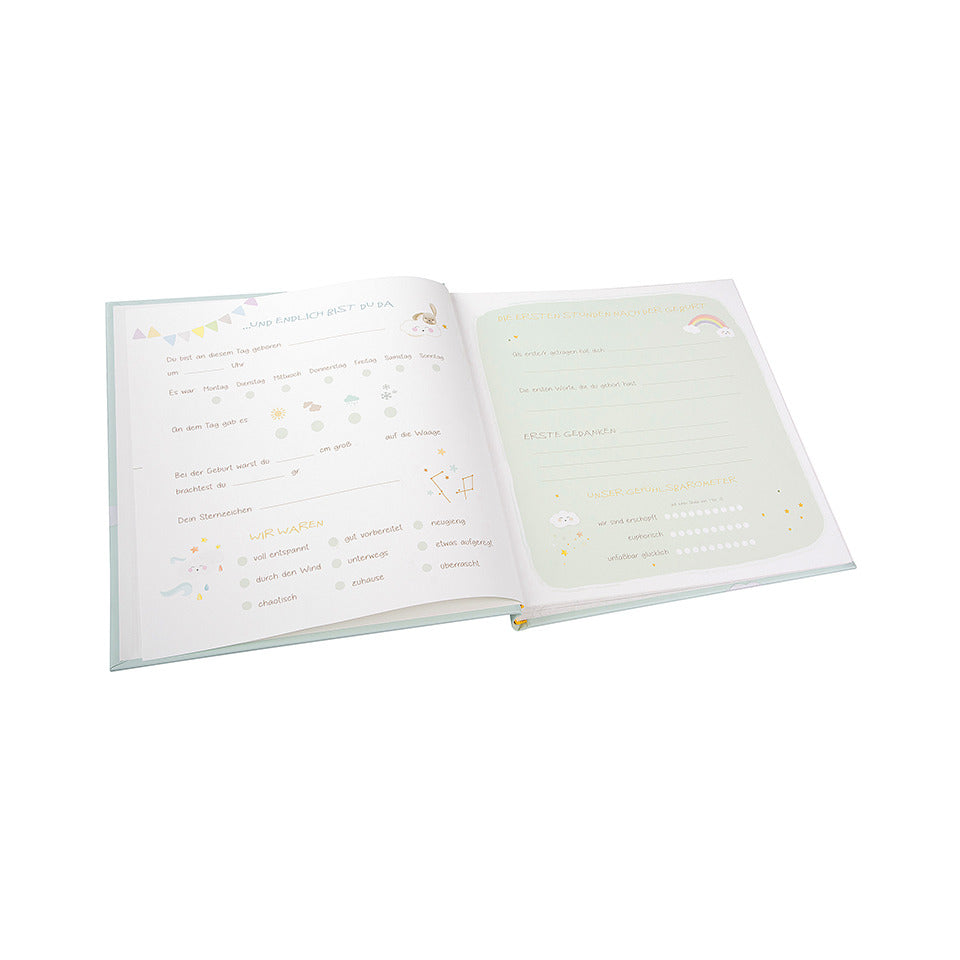 ...UND ENDLICH BIST DU DA
Du bist an diesem Tag geboren
um Uhr
Es war Montag Dienstag Mittwoch Donnerstag Freitag Samstag Sonntag
An dem Tag gab es
Bei der Geburt warst du cm groß auf die Waage
brachtest du gr.
Dein Sternzeichen
WIR WAREN
voll entspannt gut vorbereitet neugierig
durch den Wind unterwegs etwas aufgeregt
chaotisch zuhause überrascht
DIE ERSTEN STUNDEN NACH DER GEBURT
Als erste/r getragen hat dich
Die ersten Worte, die du gehört hast
ERSTE GEDANKEN
UNSER GEFÜHLSBAROMETER
wir sind erschöpft
euphorisch
unfaßbar glücklich